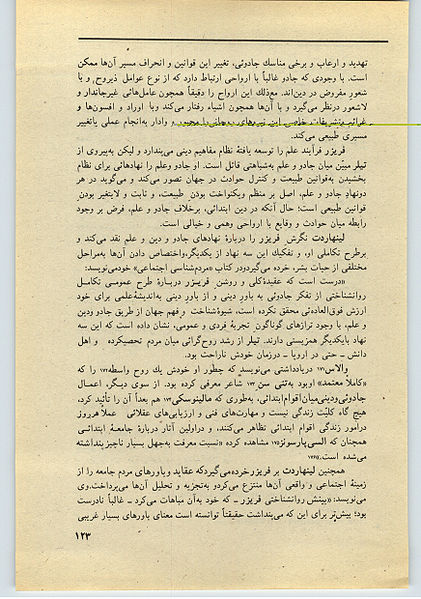 تهدید و ارعاب و برخی مناسک جادوئی، تغییر این قوانین و انحراف مسیر آن‌ها ممکن
است. با وجودی که جادو غالباً با ارواحی ارتباط دارد که از نوع عوامل ذیروح و با
شعور مفروض در دین‌اند. مع‌ذلك این ارواح را دقیقاً همچون عامل‌هائی غیرجاندار و
لاشعور درنظر می‌گیرد و با آن‌ها همچون اشیاء رفتار می‌کند و با اوراد و افسون‌ها و
وادار به‌انجام عملی یاتغییر
مسیری طبیعی می‌کند.
فریزر فرآیند علم را توسعه یافتهٔ نظام مفاهیم دینی می‌پندارد و لیکن به‌پیروی از
تیلر مبیّن میان جادو و علم به‌شباهتی قائل است. او جادو وعلم را نهادهائی برای نظام
بخشیدن به‌قوانین طبیعت و کنترل حوادث در جهان تصور می‌کند و می‌گوید در هر
دونهادِ جادو و علم، اصل بر منظم ویکنواخت بودن طبیعت، و ثابت و لایتغیر بودن
قوانین طبیعی است؛ حال آنکه در دین ابتدائی، برخلاف جادو و علم، فرض بر وجود
رابطه میان حوادث و وقایع با ارواحی وهمی و خیالی است.
لینهاردت نگرش فریزر را دربارهٔ نهادهای جادو و دین و علم نقد می‌کند و
برطرح تکاملی او، و تفکیک این سه نهاد از یکدیگر،واختصاص دادن آن‌ها به‌مراحل
مختلفی از حیات بشر، خرده می‌گیردودر کتاب «مردم‌شناسی اجتماعی» خودمی‌نویسد:
«درست است که عقیدهٔ‌کلی و روشن فریزر دربارهٔ طرح عمومی تکامل
روانشناختی از تفکر جادوئی به باور دینی و از باور دینی به‌اندیشهٔ‌علمی برای خود
ارزش فوق‌العاده‌ئی محقق نکرده است، شیوهٔ‌شناخت و فهم جهان از طریق جادو ودین
و علم، با وجود ترازهای گوناگون تجربهٔ فردی و عمومی، نشان داده است که این سه
نهاد بایکدیگر همزیستی دارند. تیلر از رشد روح‌گرائی میان مردم تحصیکرده و اهل
دانش ــ حتی در اروپا ــ درزمان خودش ناراحت بود.
والاس دریادداشتی می‌نویسد که چطور او خودش یک روح واسطه را که
«کاملاً معتمد» اوبود به‌تنی سن شاعر معرفی کرده بود. از سوی دیگر، اعمال
جادوئی‌ودینی‌میان‌اقوام‌ابتدائی، به‌طوری که مالینوسکی هم بعداً آن را تأئید کرد،
هیچ گاه کلیّت زندگی نیست و مهارت‌های فنی و ارزیابی‌های عقلائی عملاً هرروز
درامور زندگی اقوام ابتدائی تظاهر می‌کنند، و دراولین آثار دربارهٔ جامعهٔ ابتدائی
همچنان که السی‌پارسونز مشاهده کرده «نسبت معرفت به‌جهل بسیار ناچیز پنداشته
می‌شده است.»
همچنین لینهاردت بر فریزرخرده‌می‌گیردکه عقاید و باورهای مردم جامعه را از
زمینهٔ اجتماعی و واقعی آن‌ها منتزع می‌کردو به‌تجزیه و تحلیل آن‌ها می‌پرداخت.وی
می‌نویسد: «بینش روانشناختی فریزر ــ که خود به‌آن مباهات می‌کرد ــ غالباً نادرست
بود؛ بیش‌تر برای این که می‌پنداشت حقیقتاً توانسته است معنای باورهای بسیار غریبی
۱۲۳